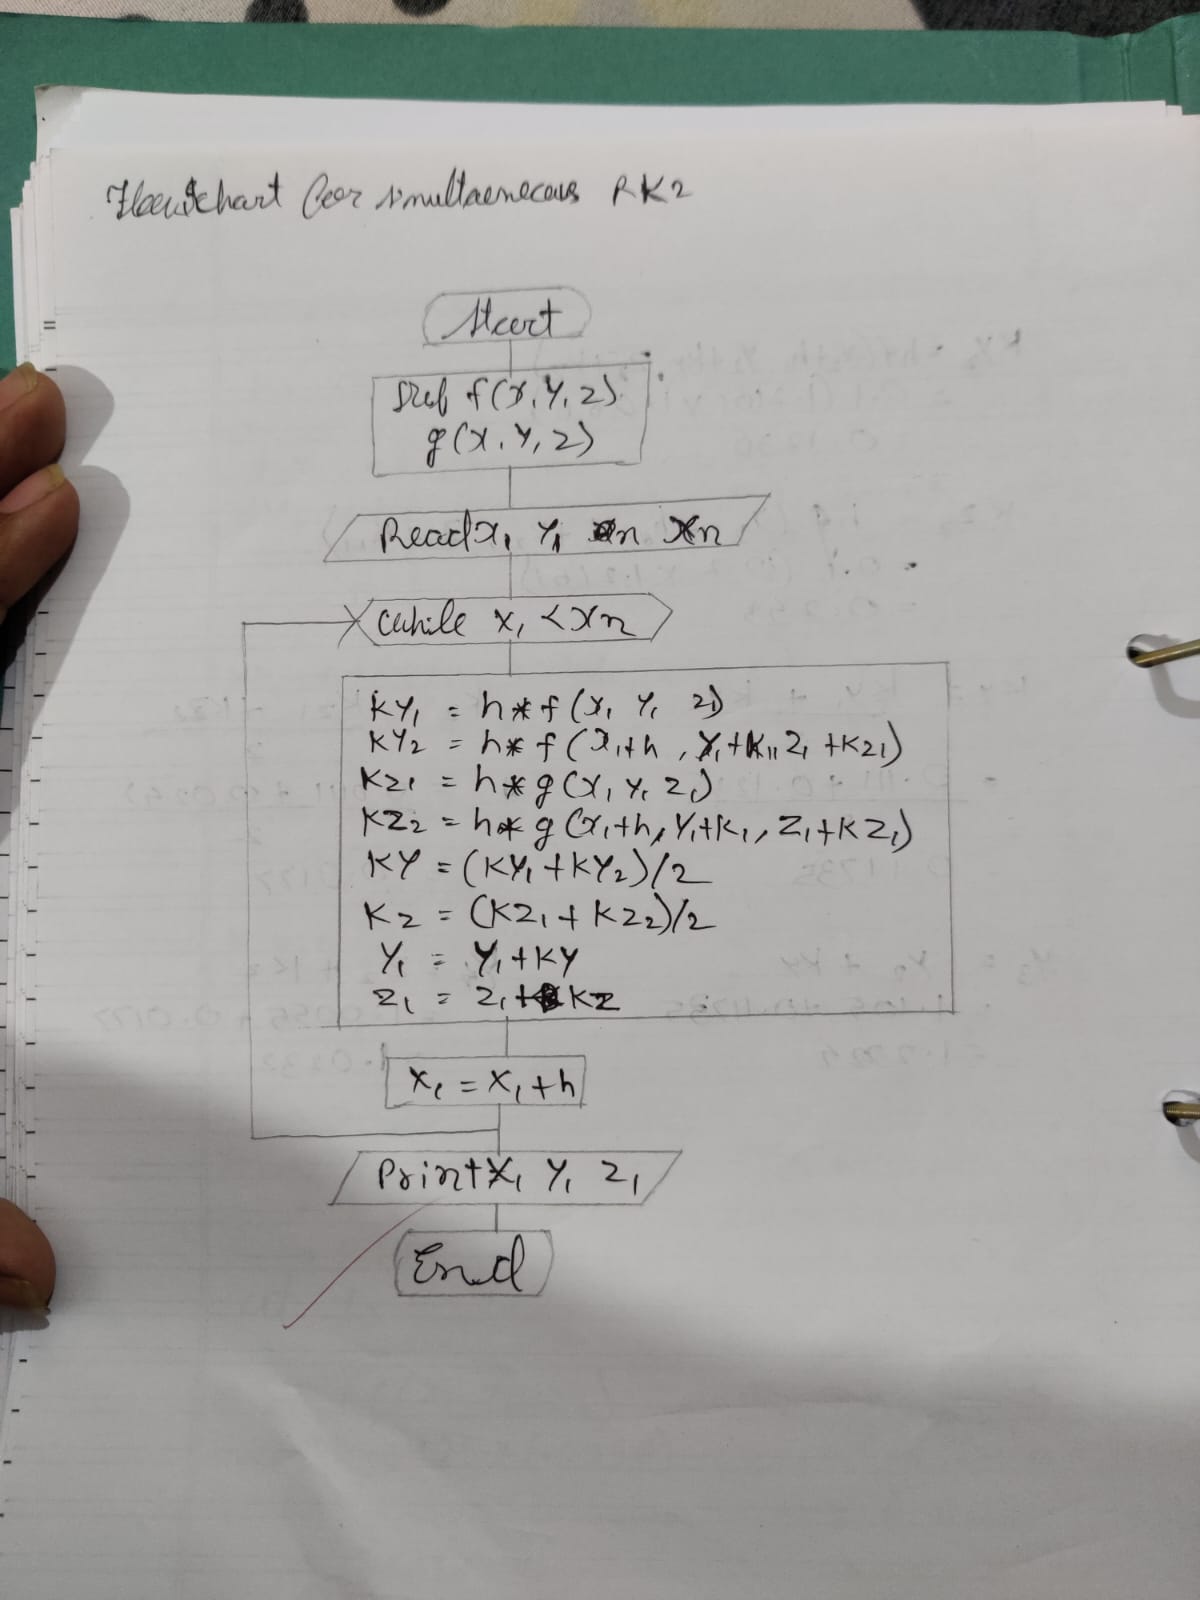 Flowchart for simultaeneous RK2
Start
Def f(x, y, z)
g(x, y, z)
Read x1 y1 xn
While x1 < xn
KY1 = h*f(x1 y1 z1)
KY2 = h*f(x1+h, y1+K11 z1+Kz1)
Kz1 = h*g(x1 y1 z1)
KZ2 = h*g(x1+h, y1+K1, z1+KZ1)
KY = (KY1+KY2)/2
Kz = (KZ1+KZ2)/2
Y1 = Y1+KY
z1 = z1+KZ
x1 = x1+h
Print x1 y1 z1
End